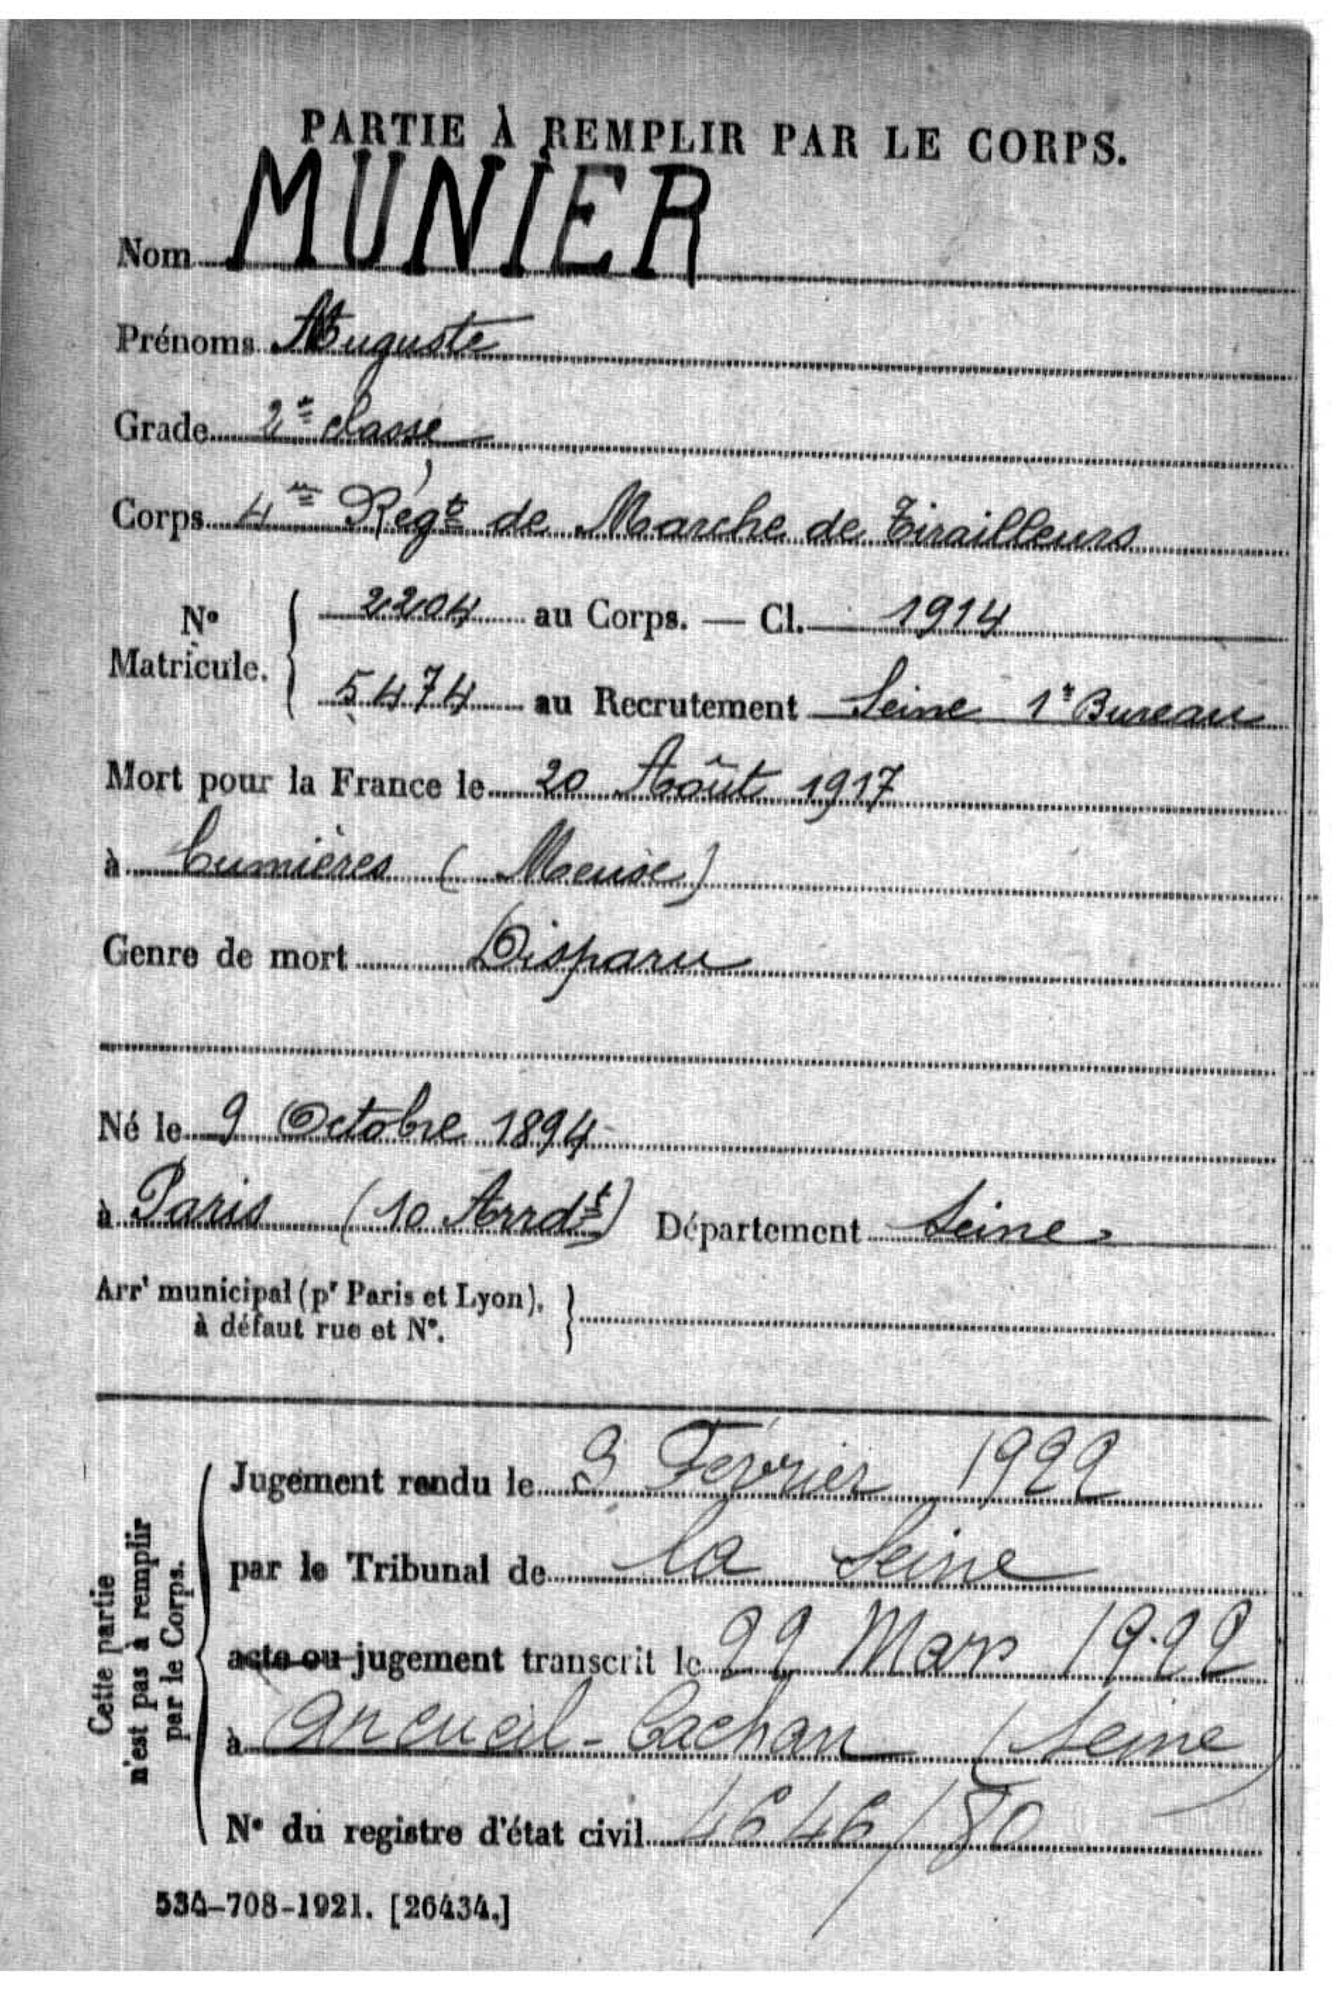 PARTIE À REMPLIR PAR LE CORPS.
Nom MUNIER
Prénoms Auguste
Grade 2e classe
Corps 4me Régt de Marche de Tirailleurs
No Matricule. 2204 au Corps. — Cl. 1914
5474 au Recrutement Seine 1r Bureau
Mort pour la France le 20 Août 1917
à Cumières (Meuse)
Genre de mort Disparu
Né le 9 Octobre 1894
à Paris (10 Arrdt) Département Seine
Arrt municipal (pr Paris et Lyon),
à défaut rue et No.
Cette partie
n'est pas à remplir
par le Corps.
Jugement rendu le 3 Février 1922
par le Tribunal de la Seine
acte ou jugement transcrit le 22 Mars 1922
à Arcueil-Cachan (Seine)
No du registre d'état civil 4646/80
534-708-1921. [26434.]